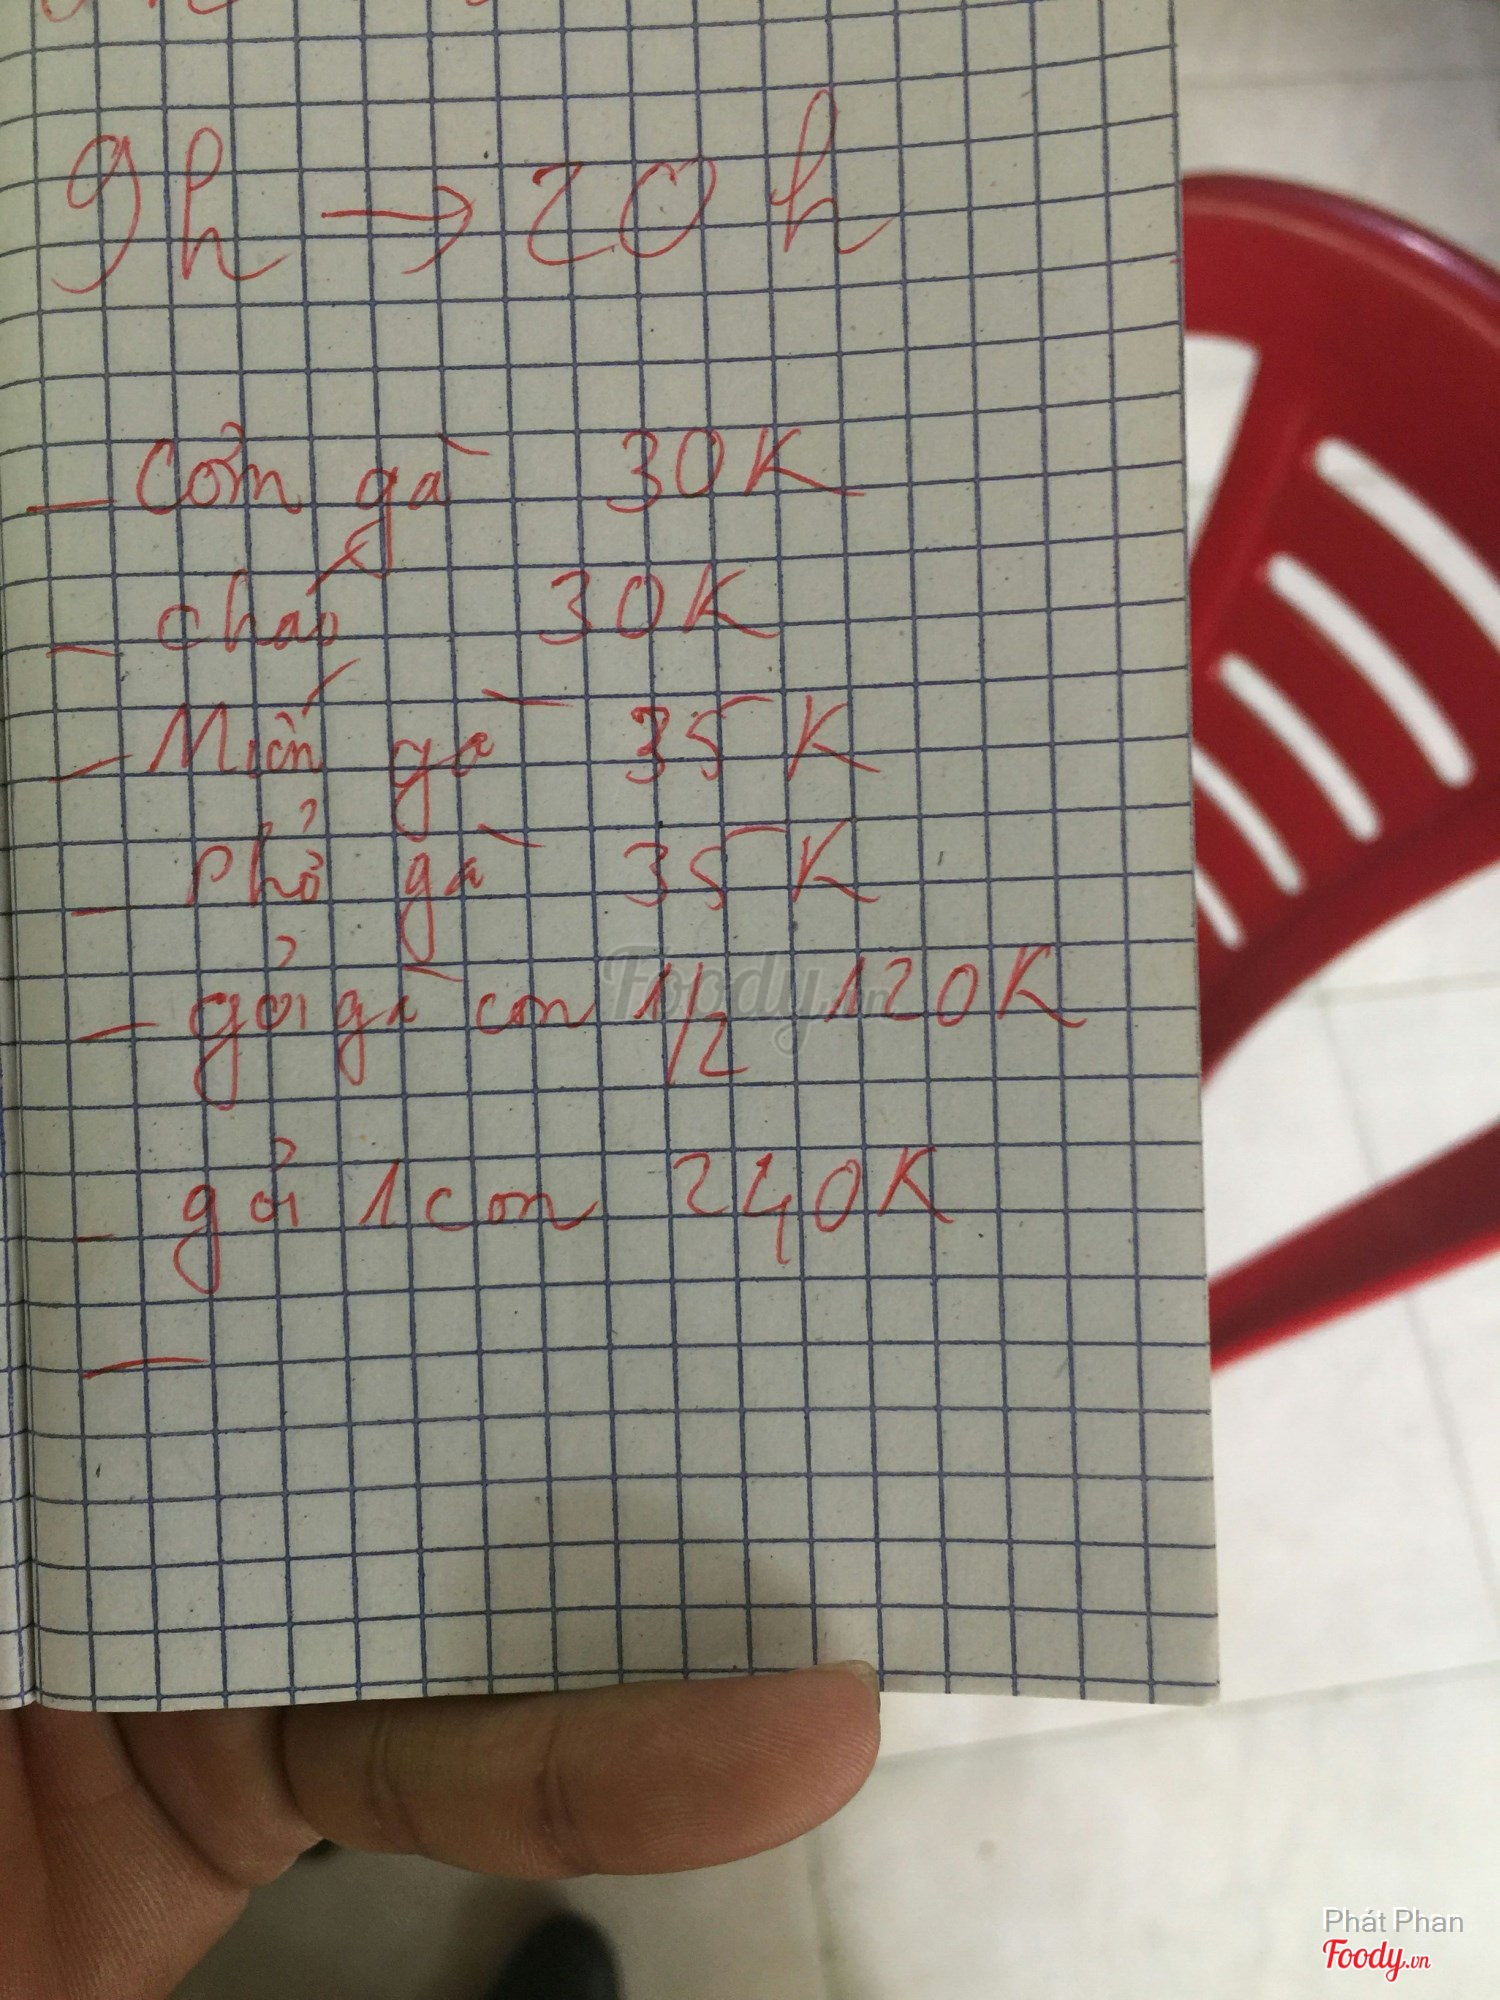 9h → 20h
- Cơm gà 30K
- cháo 30K
- Miến gà 35K
- Phở gà 35K
- gỏi gà con 1/2 120K
- gỏi 1 con 240K
-
Foody.vn
Phát Phan
Foody.vn